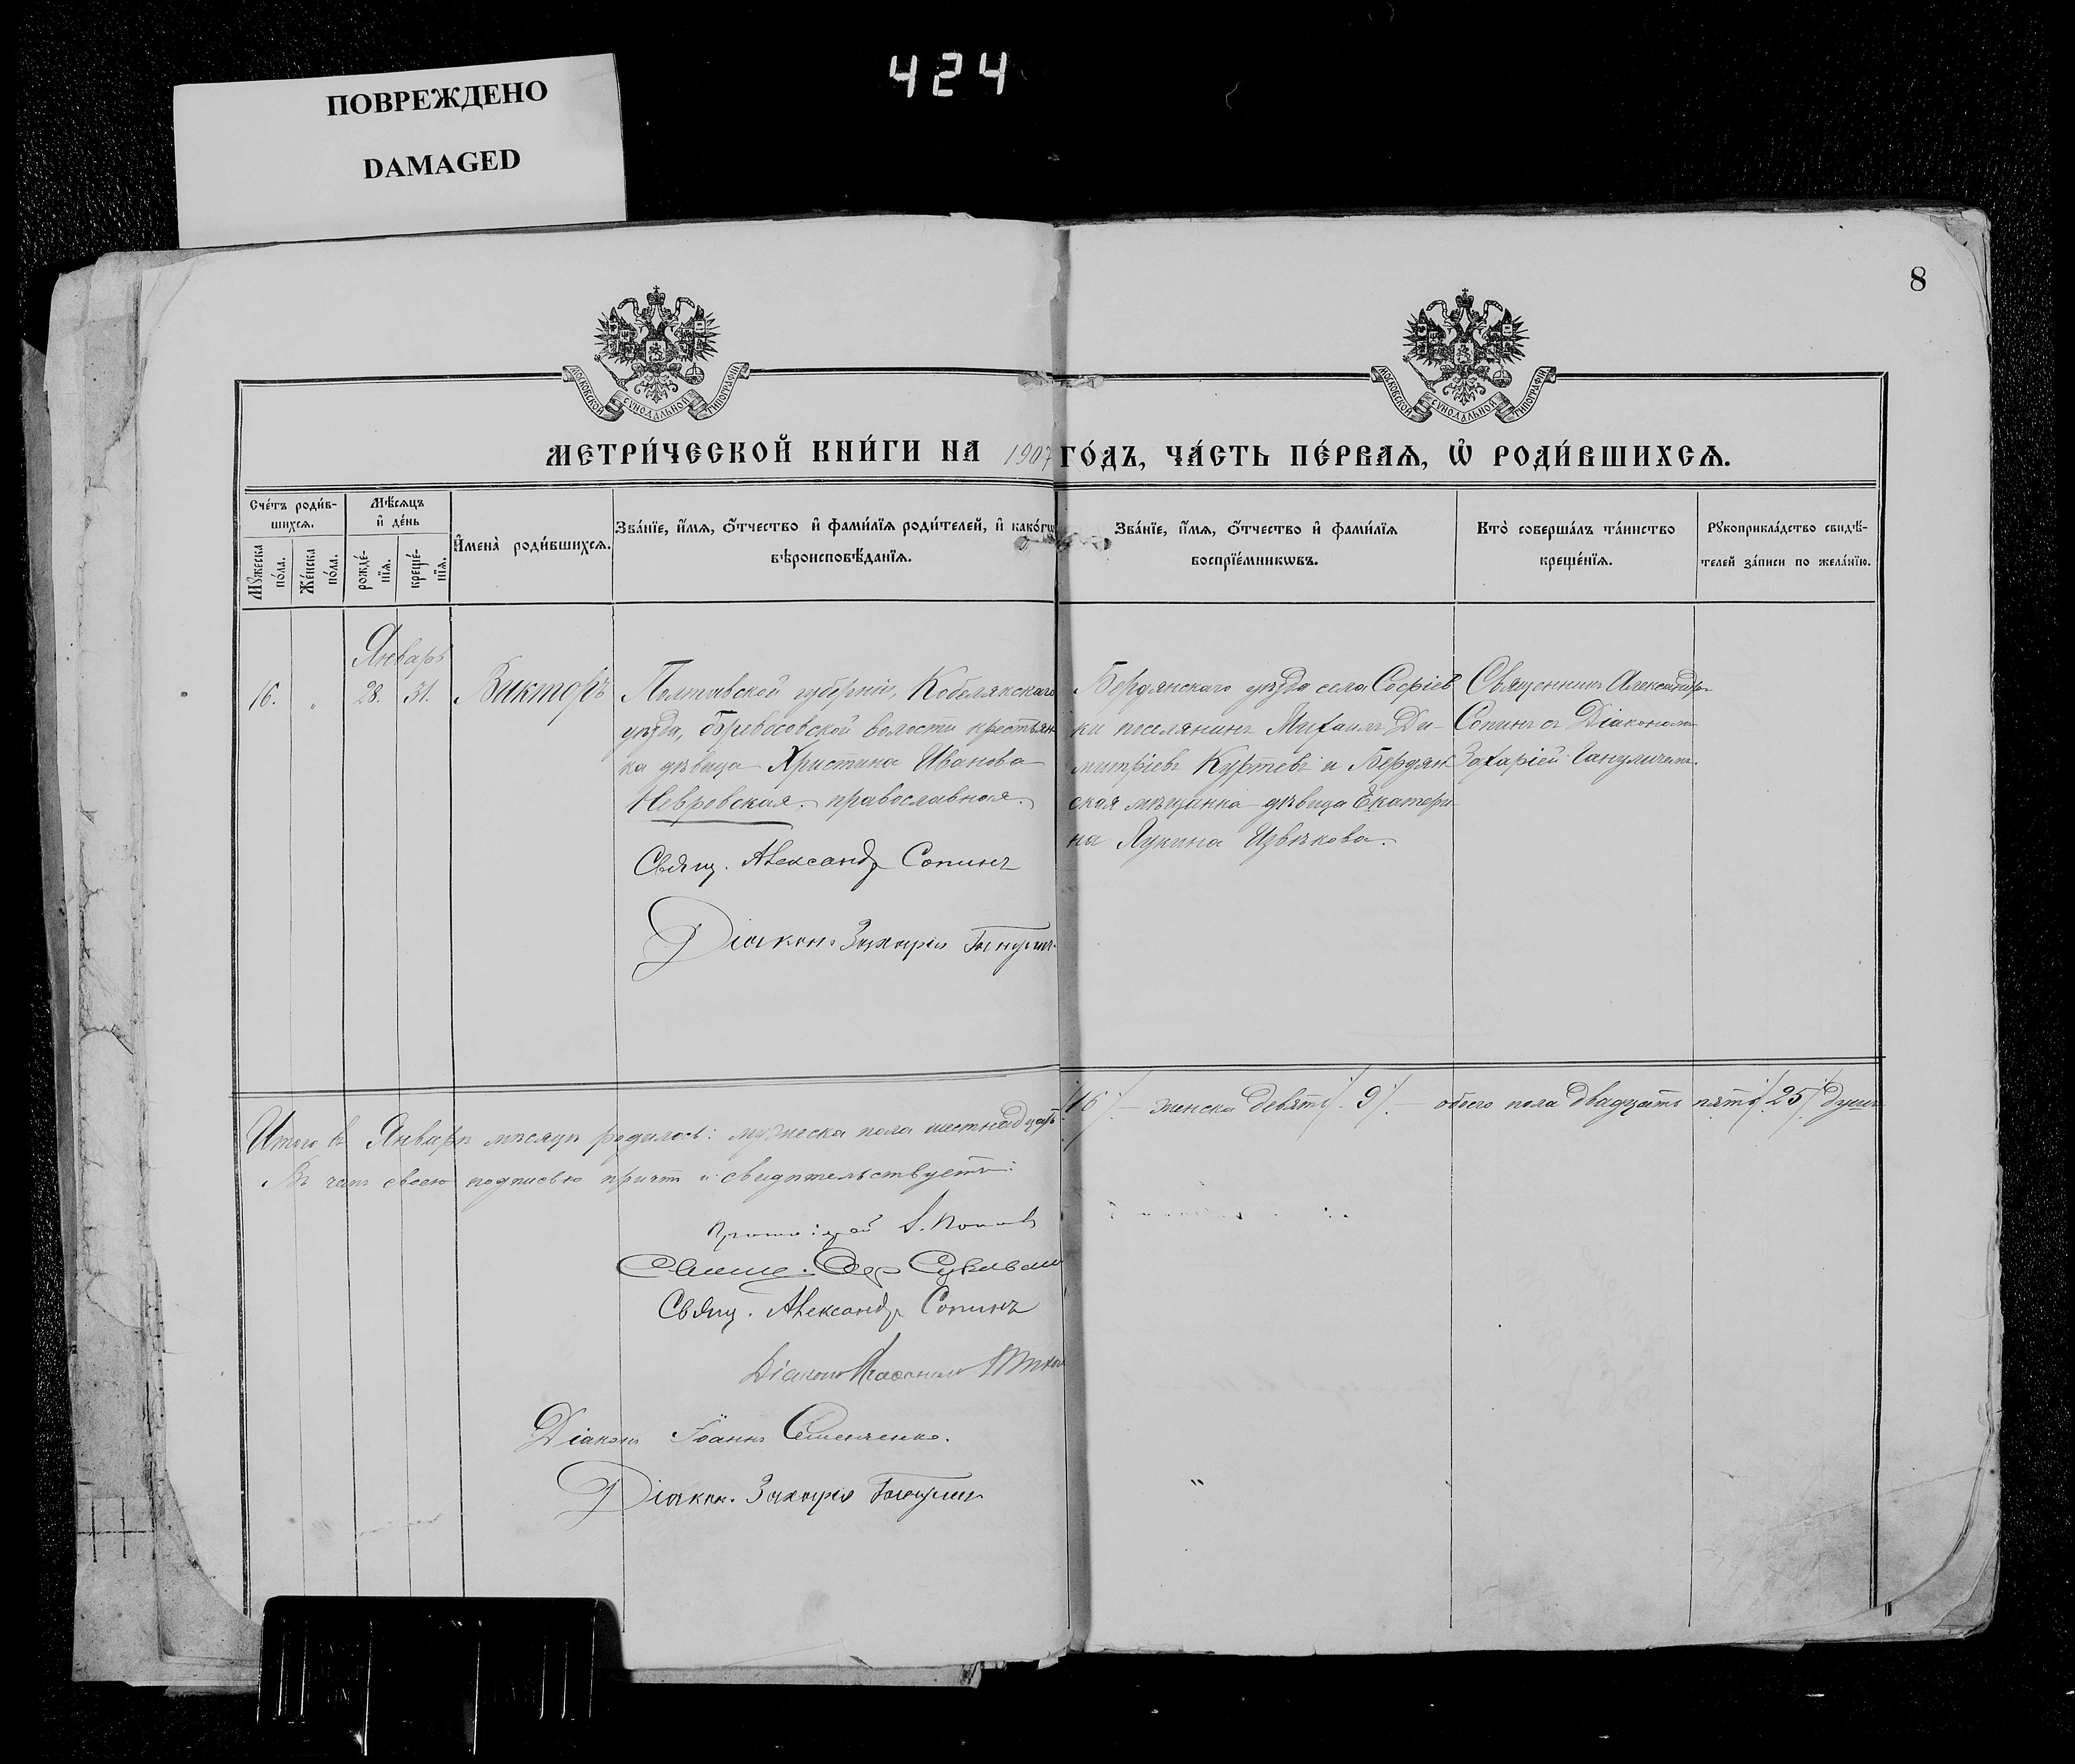 ПОВРЕЖДЕНО
DAMAGED
424
8
МОСКОВСКОЙ СѴНОДАЛЬНОЙ ТИПОГРАФІИ
МОСКОВСКОЙ СѴНОДАЛЬНОЙ ТИПОГРАФІИ
МЕТРИ́ЧЕСКОЙ КНИ́ГИ НА 1907 ГО́ДЪ, ЧА́СТЬ ПЕ́РВАѦ, Ѡ҆ РОДИ́ВШИХСѦ.
Сче́тъ роди́в-
шихсѧ.
Мꙋ́жеска
по́ла.
Же́нска
по́ла.
Мѣ́сѧцъ
и҆ де́нь
рожде́-
нїѧ.
креще́-
нїѧ.
И҆мена̀ роди́вшихсѧ.
Зва́нїе, и҆́мѧ, ѻ҆́тчество и҆ фами́лїѧ роди́телей, и҆ како́гѡ
вѣроисповѣ́данїѧ.
Зва́нїе, и҆́мѧ, ѻ҆́тчество и҆ фами́лїѧ
воспрїе́мникѡвъ.
Кто̀ соверша́лъ та́инство
креще́нїѧ.
Рꙋкоприкла́дство свидѣ́-
телей за́писи по жела́нїю.
Январь
16. „ 28. 31. Викторъ
Полтавской губерніи, Кобелякскаго
уѣзда, волости крестьян
ка дѣвица Христина Иванова
Невровская. православная.
Свящ. Александръ Сопинъ
Діаконъ Захарія
Бердянскаго уѣзда села Софіев
ки поселянинъ Михаилъ Ди-
митріевъ Куртевъ и Бердян
ская мѣщанка дѣвица Екатери
на Лукина Извѣкова.
Священникъ Александръ
Сопинъ съ Діакономъ
Захаріей
Итого въ Январѣ мѣсяцѣ родилось: мужеска пола шестнадцать /16/ — женска девять /9/. — обоего пола двадцать пять /25/ душъ
Въ чемъ своею подписью причтъ и свидѣтельствуетъ:
Протоіерей Попов
Свящ. Александръ Сопинъ
Діаконъ
Діаконъ Іоаннъ Семенченко.
Діаконъ Захарія